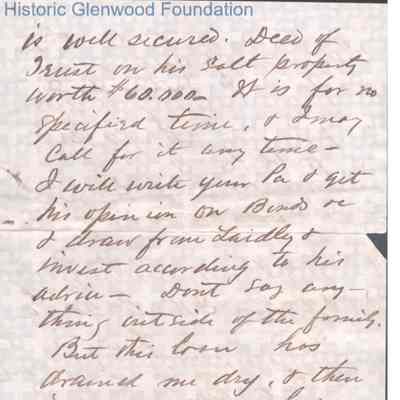 Historic Glenwood Foundation
is well secured. Deed of
Trust on his Salt property
worth $60.000 - It is for no
specified time, & I may
Call for it any time -
I will write your Pa & get
his opinion on Bonds &c
& draw from Laidly &
invest according to his
advice - Dont say any-
thing outside of the family.
But this loan has
drained me dry, & then